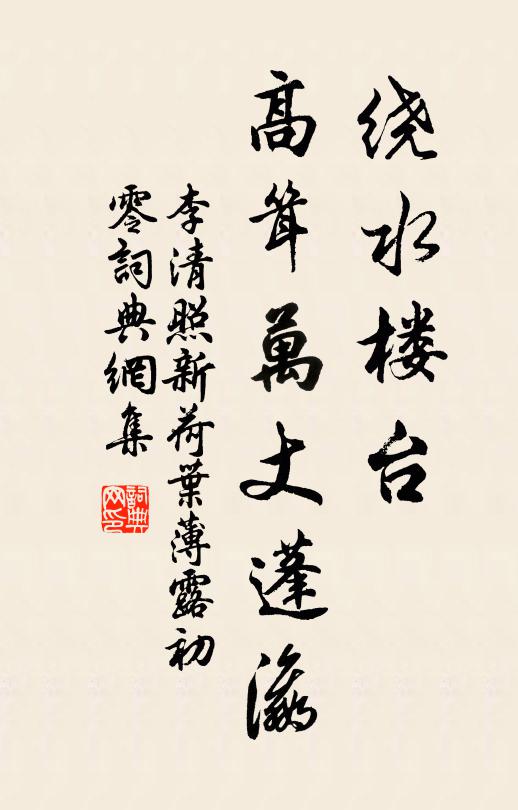 绕水楼台
高耸萬丈蓬瀛
李清照新荷葉薄露初
零詞典網集
詞典
网印